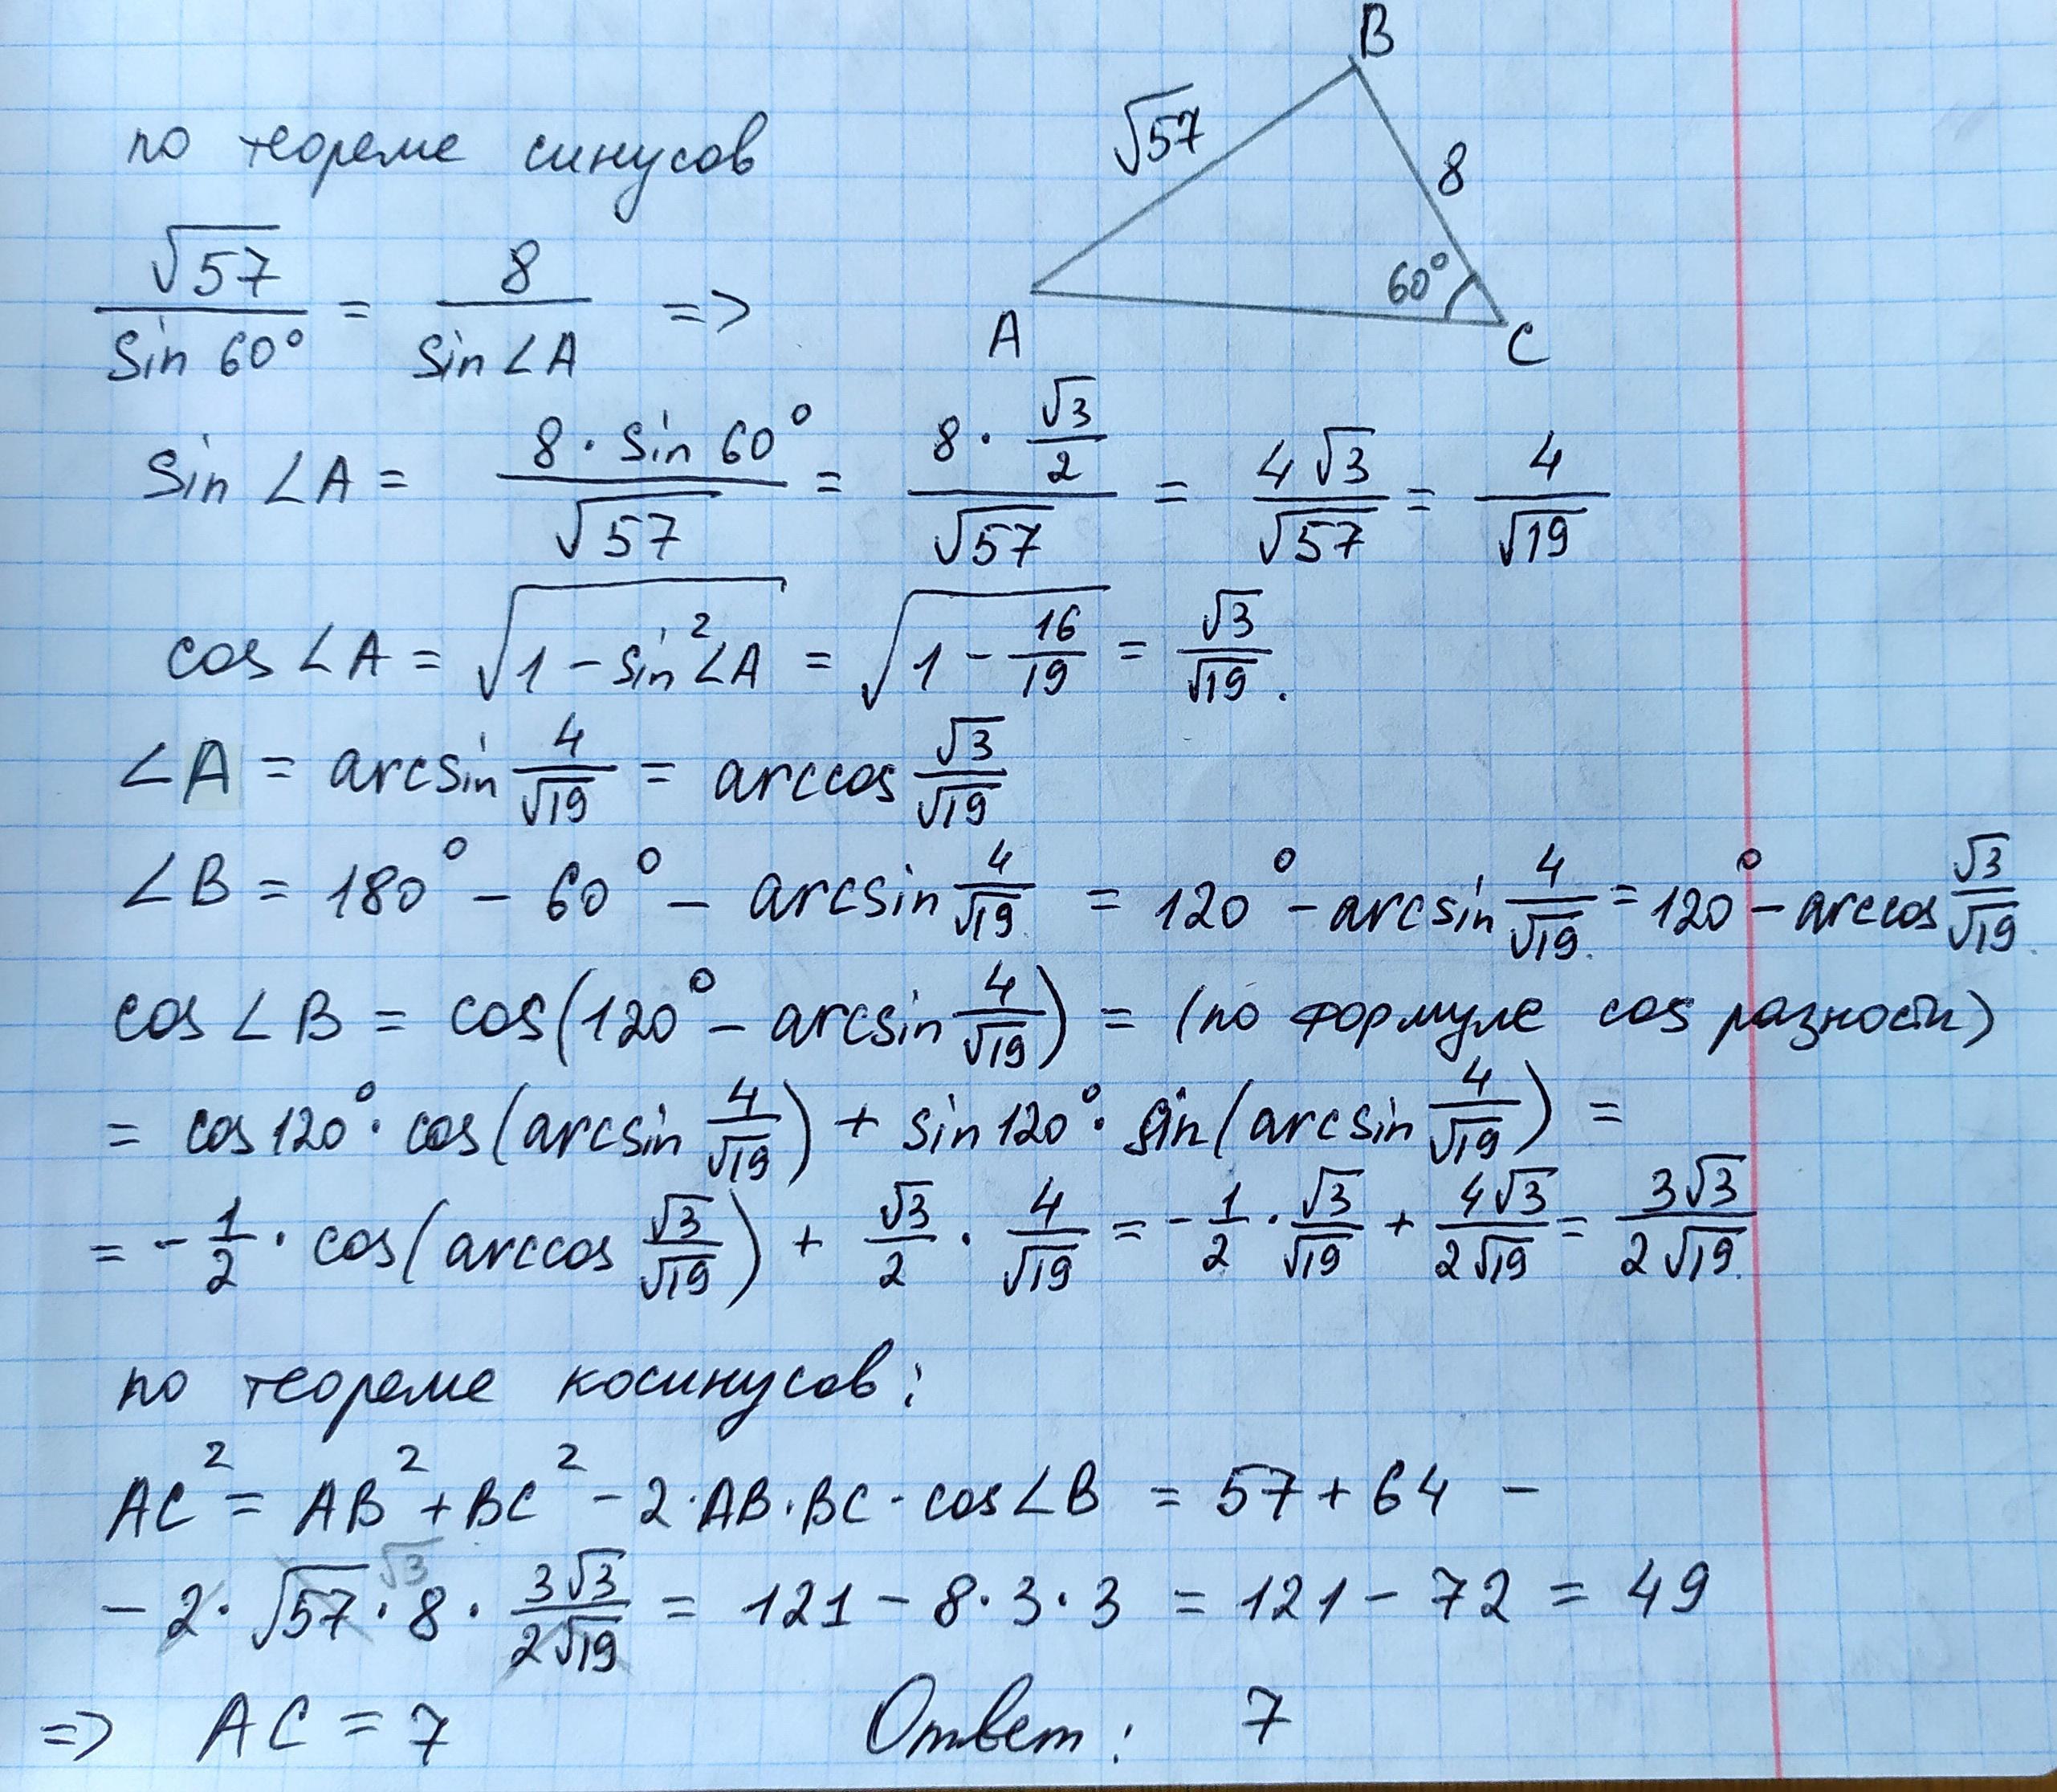 B
√57
8
60°
A
C
по теореме синусов
√57 / sin 60° = 8 / sin ∠A =>
sin ∠A = 8 · sin 60° / √57 = 8 · √3/2 / √57 = 4√3 / √57 = 4 / √19
cos ∠A = √(1 - sin² ∠A) = √(1 - 16/19) = √3 / √19.
∠A = arcsin 4/√19 = arccos √3/√19
∠B = 180° - 60° - arcsin 4/√19 = 120° - arcsin 4/√19. = 120° - arccos √3/√19.
cos ∠B = cos(120° - arcsin 4/√19) = (по формуле cos разности)
= cos 120° · cos(arcsin 4/√19) + sin 120° · sin(arcsin 4/√19) =
= - 1/2 · cos(arccos √3/√19) + √3/2 · 4/√19 = - 1/2 · √3/√19 + 4√3 / 2√19 = 3√3 / 2√19.
по теореме косинусов:
AC² = AB² + BC² - 2·AB·BC·cos∠B = 57 + 64 -
- 2 · √57 √3 · 8 · 3√3 / 2√19 = 121 - 8·3·3 = 121 - 72 = 49
=> AC = 7 Ответ: 7